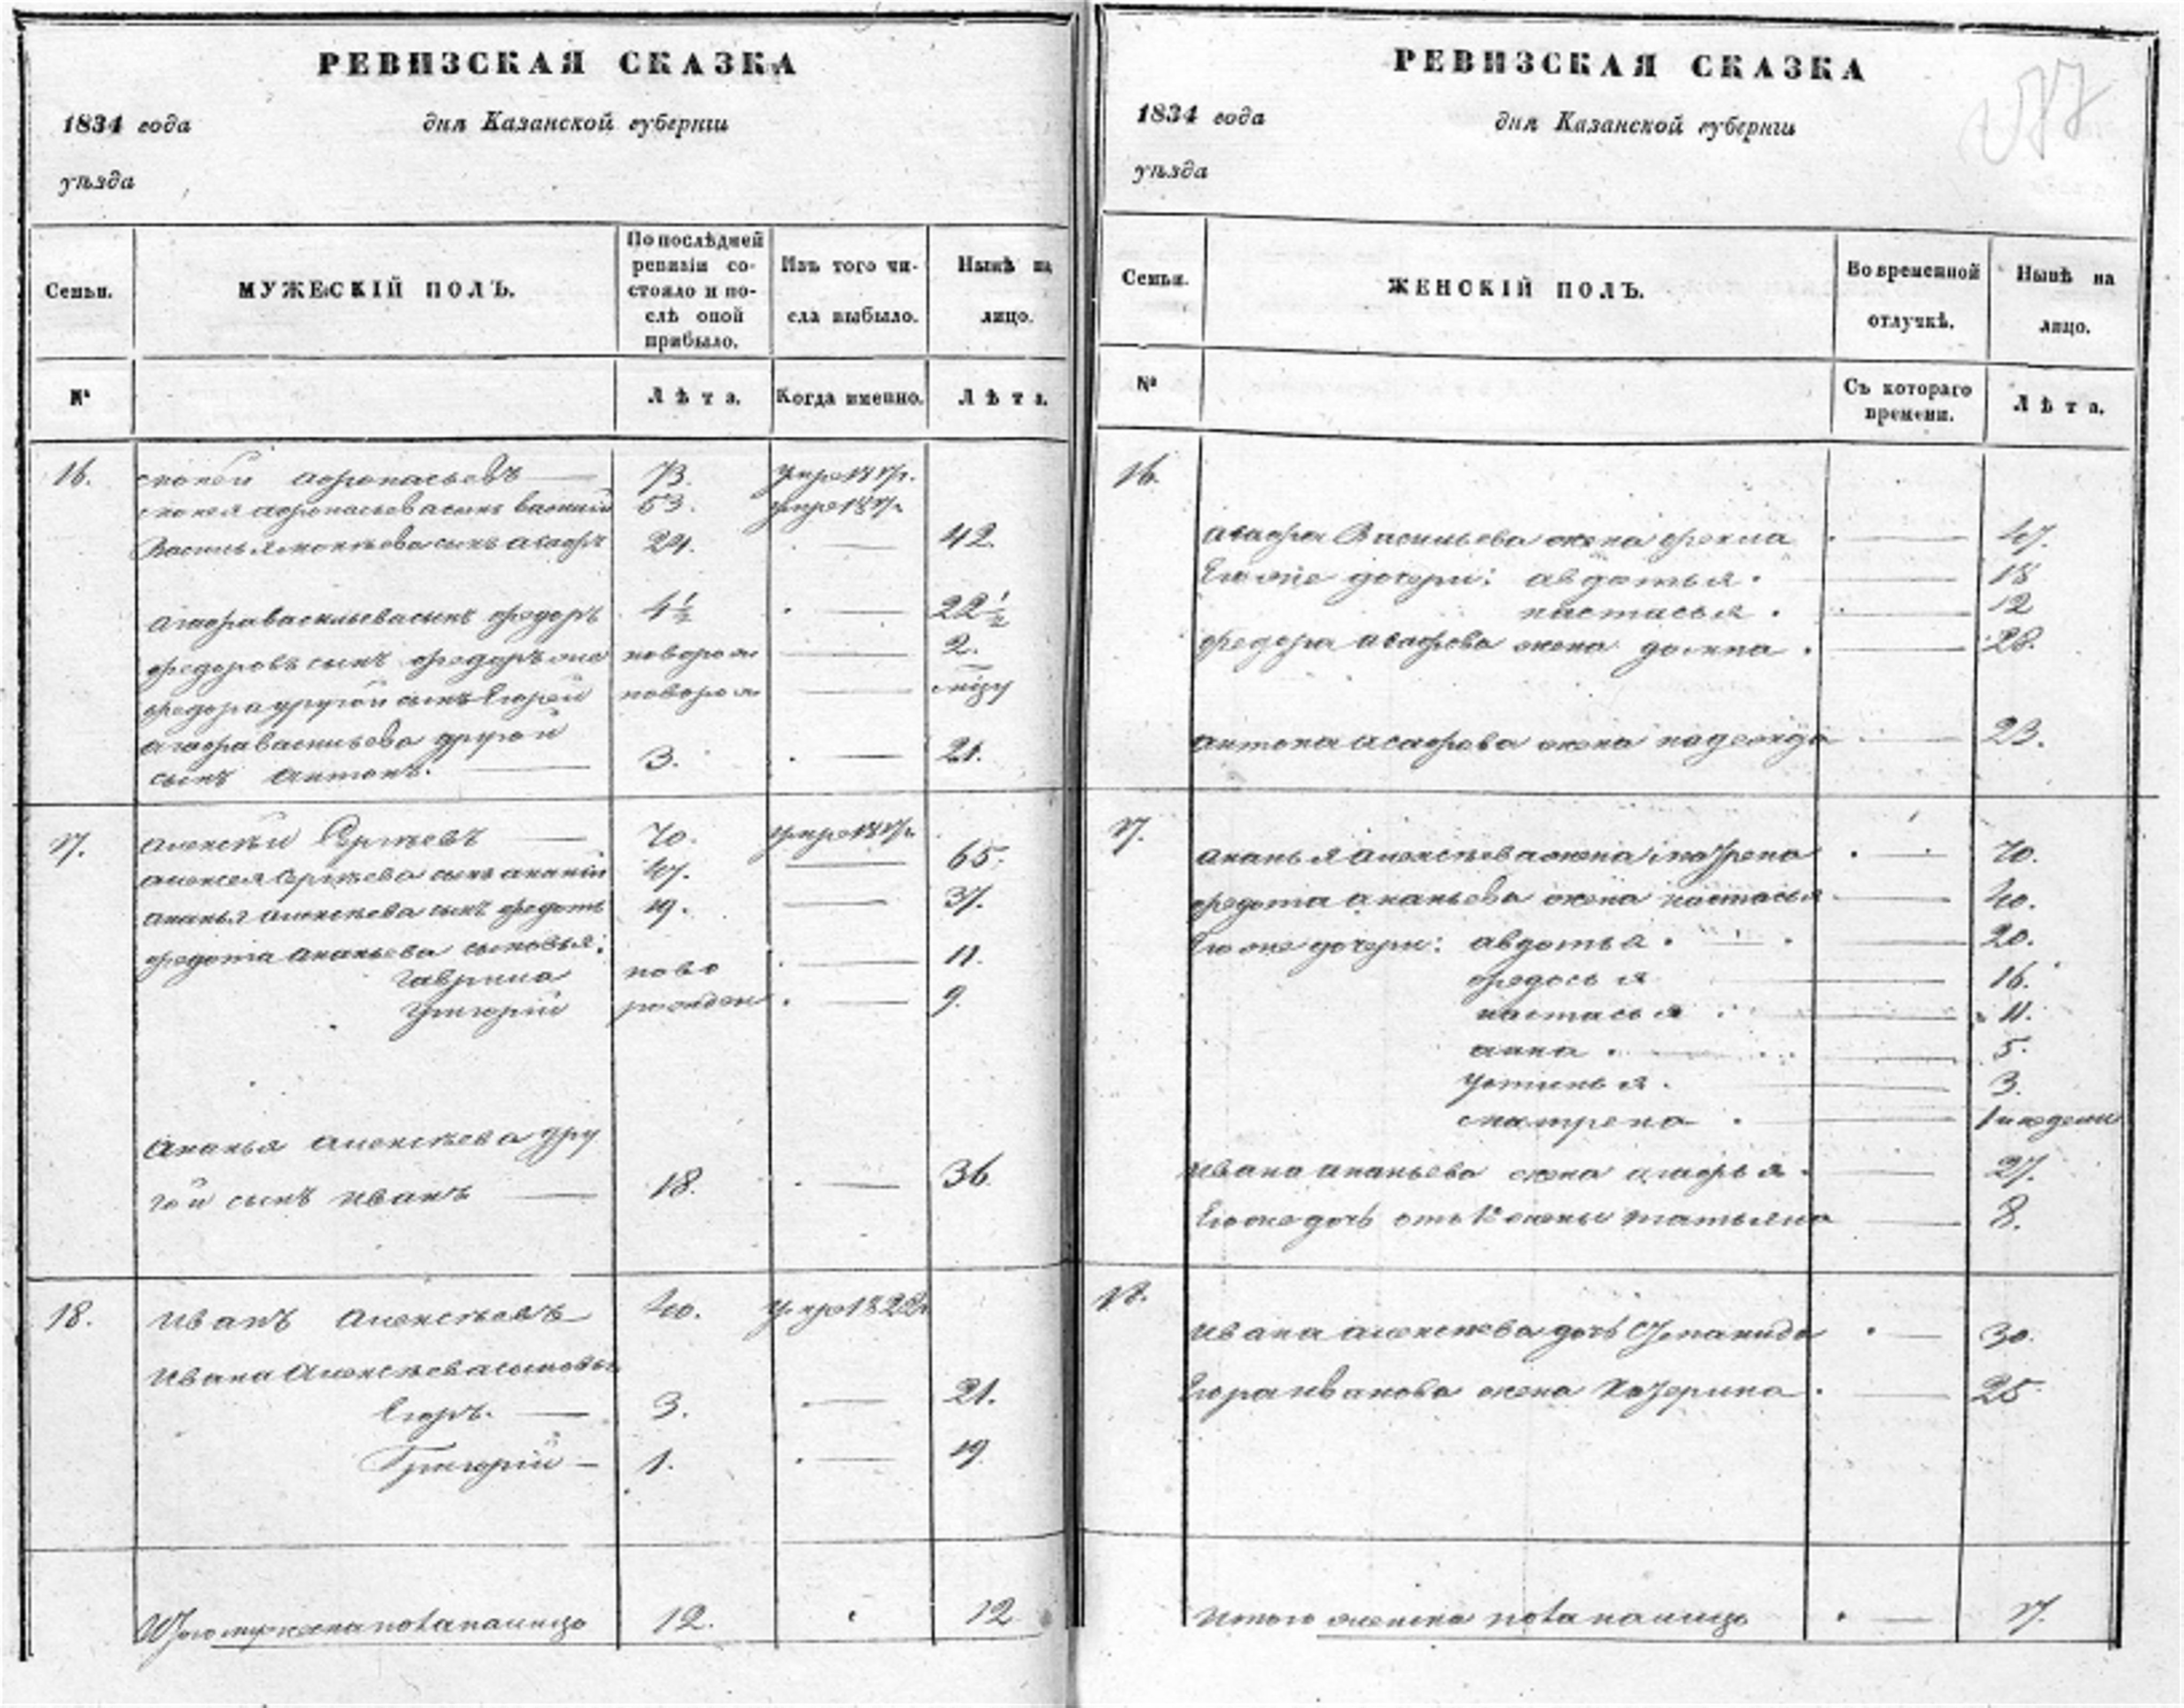 РЕВИЗСКАЯ СКАЗКА
1834 года дня Казанской губернiи
уѣзда
Семьи. МУЖЕСКIЙ ПОЛЪ. По послѣдней ревизiи состояло и послѣ оной прибыло. Изъ того числа выбыло. Нынѣ на лицо.
№ Лѣта. Когда именно. Лѣта.
16. афонасьевъ 73.
афонасьева сынъ василий 53.
сынъ асафъ 24. 42.
асафа васильева сынъ федоръ 4½ 22½
федоровъ сынъ федоръ же новорож 2.
федора другой сынъ Егорей новорож
асафа васильева другой
сынъ антонъ. 3. 21.
17. алексѣй Сергѣевъ 70. умре
алексея сергѣева сынъ ананiй 47. 65.
ананья алексѣева сынъ федотъ 19. 37.
федота ананьева сыновья:
гаврила ново 11.
григорiй рожден 9.
Ананья алексѣева дру
гой сынъ иванъ 18. 36.
18. иванъ Алексѣевъ 40. умре 1828г
ивана Алексѣева сыновья
Егоръ. 3. 21.
Григорiй 1. 19.
Итого мужеска пола на лицо 12. 12
РЕВИЗСКАЯ СКАЗКА
1834 года дня Казанской губернiи
уѣзда
Семьи. ЖЕНСКIЙ ПОЛЪ. Во временной отлучкѣ. Нынѣ на лицо.
№ Съ котораго времени. Лѣта.
16.
асафа Васильева жена фекла 47.
Его же дочери: авдотья. 18
настасья. 12
федора асафова жена домна. 28.
антона асафова жена надежда 23.
17.
ананья алексѣева жена матрена 70.
федота ананьева жена настасья 40.
Его же дочери: авдотья. 20.
федосья 16.
настасья 11.
анна. 5.
устинья. 3.
матрена 1 недели
ивана ананьева жена агафья. 27.
Его же дочь отъ 1й жены татьяна 8.
18.
ивана алексѣева дочь Степанида 30.
Егора иванова жена Катерина. 25
итого женска пола на лицо 17.